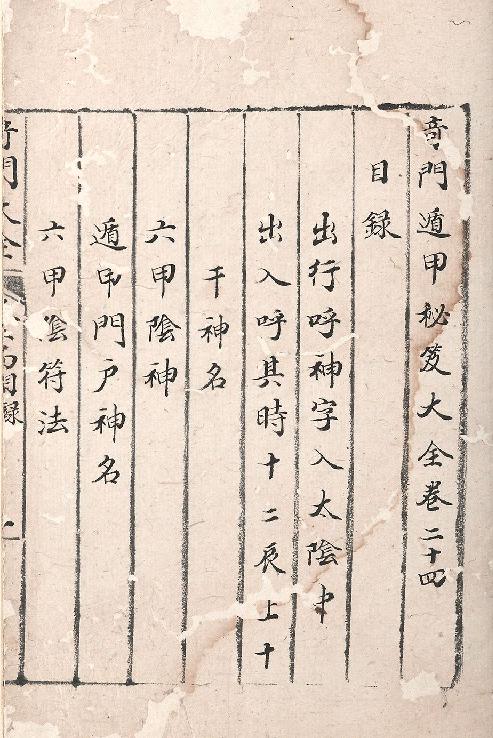 奇門遁甲秘笈大全卷二十四
目録
出行呼神字入太陰中
出入呼其時十二辰上十
干神名
六甲陰神
遁甲門户神名
六甲陰符法
奇門大全
目録